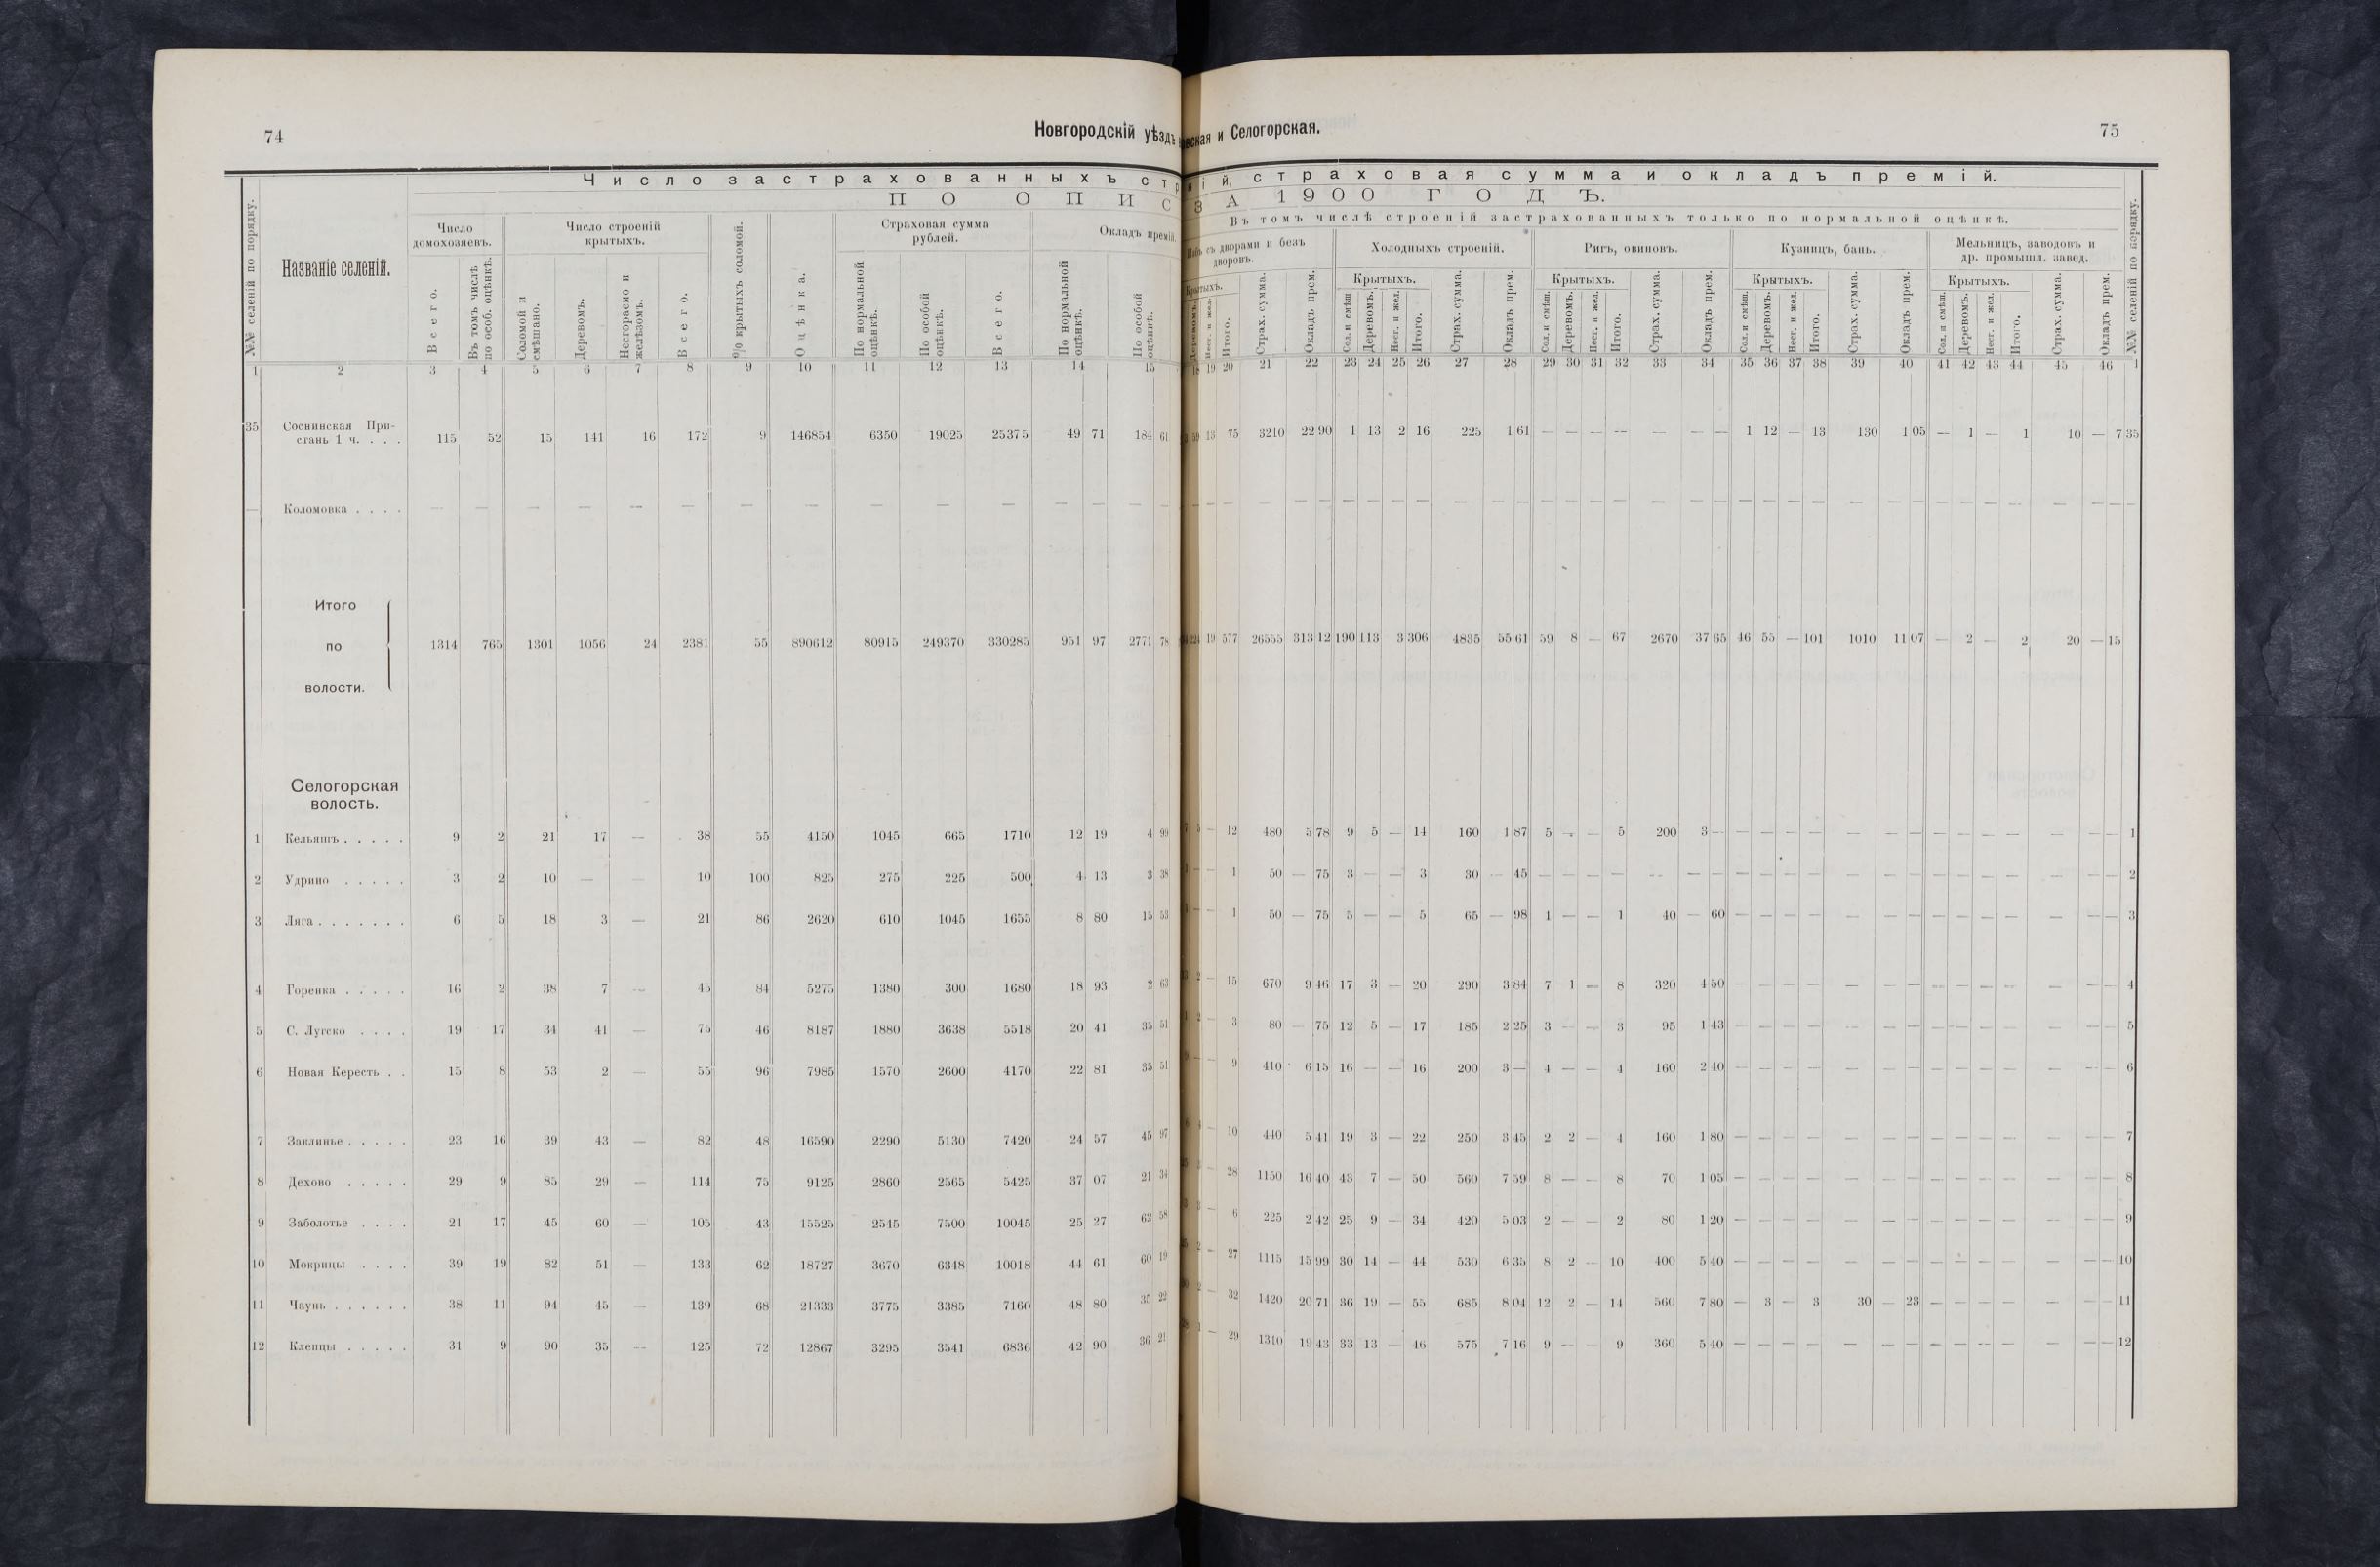 74
Новгородскій уѣздъ
Число застрахованныхъ
ПО ОПИС
№№ селеній по порядку.
Названіе селеній.
Число домохозяевъ.
Всего.
Въ томъ числѣ по особ. оцѣнкѣ.
Число строеній крытыхъ.
Соломой и смѣшано.
Деревомъ.
Несгораемо и желѣзомъ.
Всего.
% крытыхъ соломой.
Оцѣнка.
Страховая сумма рублей.
По нормальной оцѣнкѣ.
По особой оцѣнкѣ.
Всего.
Окладъ премій.
По нормальной оцѣнкѣ.
По особой оцѣнкѣ.
1 2 3 4 5 6 7 8 9 10 11 12 13 14 15
35 Соснинская При-
стань 1 ч. . . . 115 52 15 141 16 172 9 146854 6350 19025 25375 49 71 184 61
— Коломовка . . . . — — — — — — — — — — — — — — —
Итого
по 1314 765 1301 1056 24 2381 55 890612 80915 249370 330285 951 97 2771 78
волости.
Селогорская
волость.
1 Кельяшъ . . . . . 9 2 21 17 — 38 55 4150 1045 665 1710 12 19 4 99
2 Удрино . . . . . 3 2 10 — — 10 100 825 275 225 500 4 13 3 38
3 Ляга . . . . . . . 6 5 18 3 — 21 86 2620 610 1045 1655 8 80 15 53
4 Горенка . . . . . 16 2 38 7 — 45 84 5275 1380 300 1680 18 93 2 63
5 С. Лугско . . . . 19 17 34 41 — 75 46 8187 1880 3638 5518 20 41 35 51
6 Новая Кересть . . 15 8 53 2 — 55 96 7985 1570 2600 4170 22 81 35 51
7 Заклинье . . . . . 23 16 39 43 — 82 48 16590 2290 5130 7420 24 57 45 97
8 Дехово . . . . . 29 9 85 29 — 114 75 9125 2860 2565 5425 37 07 21 34
9 Заболотье . . . . 21 17 45 60 — 105 43 15525 2545 7500 10045 25 27 62 58
10 Мокрицы . . . . 39 19 82 51 — 133 62 18727 3670 6348 10018 44 61 60 19
11 Чаунь . . . . . . 38 11 94 45 — 139 68 21333 3775 3385 7160 48 80 35 22
12 Клепцы . . . . . 31 9 90 35 — 125 72 12867 3295 3541 6836 42 90 36 21
и Селогорская.
75
страховая сумма и окладъ премій.
ЗА 1900 ГОДЪ.
Въ томъ числѣ строеній застрахованныхъ только по нормальной оцѣнкѣ.
съ дворами и безъ дворовъ.
Нест. и жел.
Итого.
Страх. сумма.
Окладъ прем.
Холодныхъ строеній.
Крытыхъ.
Сол. и смѣш
Деревомъ.
Нест. и жел.
Итого.
Страх. сумма.
Окладъ прем.
Ригъ, овиновъ.
Крытыхъ.
Сол. и смѣш.
Деревомъ.
Нест. и жел.
Итого.
Страх. сумма.
Окладъ прем.
Кузницъ, бань.
Крытыхъ.
Сол. и смѣш.
Деревомъ.
Нест. и жел.
Итого.
Страх. сумма.
Окладъ прем.
Мельницъ, заводовъ и др. промышл. завед.
Крытыхъ.
Сол. и смѣш.
Деревомъ.
Нест. и жел.
Итого.
Страх. сумма.
Окладъ прем.
№№ селеній по порядку.
18 19 20 21 22 23 24 25 26 27 28 29 30 31 32 33 34 35 36 37 38 39 40 41 42 43 44 45 46 1
13 75 3210 22 90 1 13 2 16 225 1 61 — — — — — — — 1 12 — 13 130 1 05 — 1 — 1 10 — 7 35
— — — — — — — — — — — — — — — — — — — — — — — — — — — — — — —
19 577 26555 313 12 190 113 3 306 4835 55 61 59 8 — 67 2670 37 65 46 55 — 101 1010 11 07 — 2 — 2 20 — 15
— 12 480 5 78 9 5 — 14 160 1 87 5 — — 5 200 3 — — — — — — — — — — — — — — — 1
— 1 50 — 75 3 — — 3 30 — 45 — — — — — — — — — — — — — — — — — — — — — 2
— 1 50 — 75 5 — — 5 65 — 98 1 — — 1 40 — 60 — — — — — — — — — — — — — — 3
2 — 15 670 9 46 17 3 — 20 290 3 84 7 1 — 8 320 4 50 — — — — — — — — — — — — — — 4
2 — 3 80 — 75 12 5 — 17 185 2 25 3 — — 3 95 1 43 — — — — — — — — — — — — — — 5
— 9 410 6 15 16 — — 16 200 3 — 4 — — 4 160 2 40 — — — — — — — — — — — — — — 6
— 10 440 5 41 19 3 — 22 250 3 45 2 2 — 4 160 1 80 — — — — — — — — — — — — — — 7
— 28 1150 16 40 43 7 — 50 560 7 59 8 — — 8 70 1 05 — — — — — — — — — — — — — — 8
— 6 225 2 42 25 9 — 34 420 5 03 2 — — 2 80 1 20 — — — — — — — — — — — — — — 9
2 — 27 1115 15 99 30 14 — 44 530 6 35 8 2 — 10 400 5 40 — — — — — — — — — — — — — — 10
2 — 32 1420 20 71 36 19 — 55 685 8 04 12 2 — 14 560 7 80 — 3 — 3 30 — 23 — — — — — — — 11
1 — 29 1310 19 43 33 13 — 46 575 7 16 9 — — 9 360 5 40 — — — — — — — — — — — — — — 12